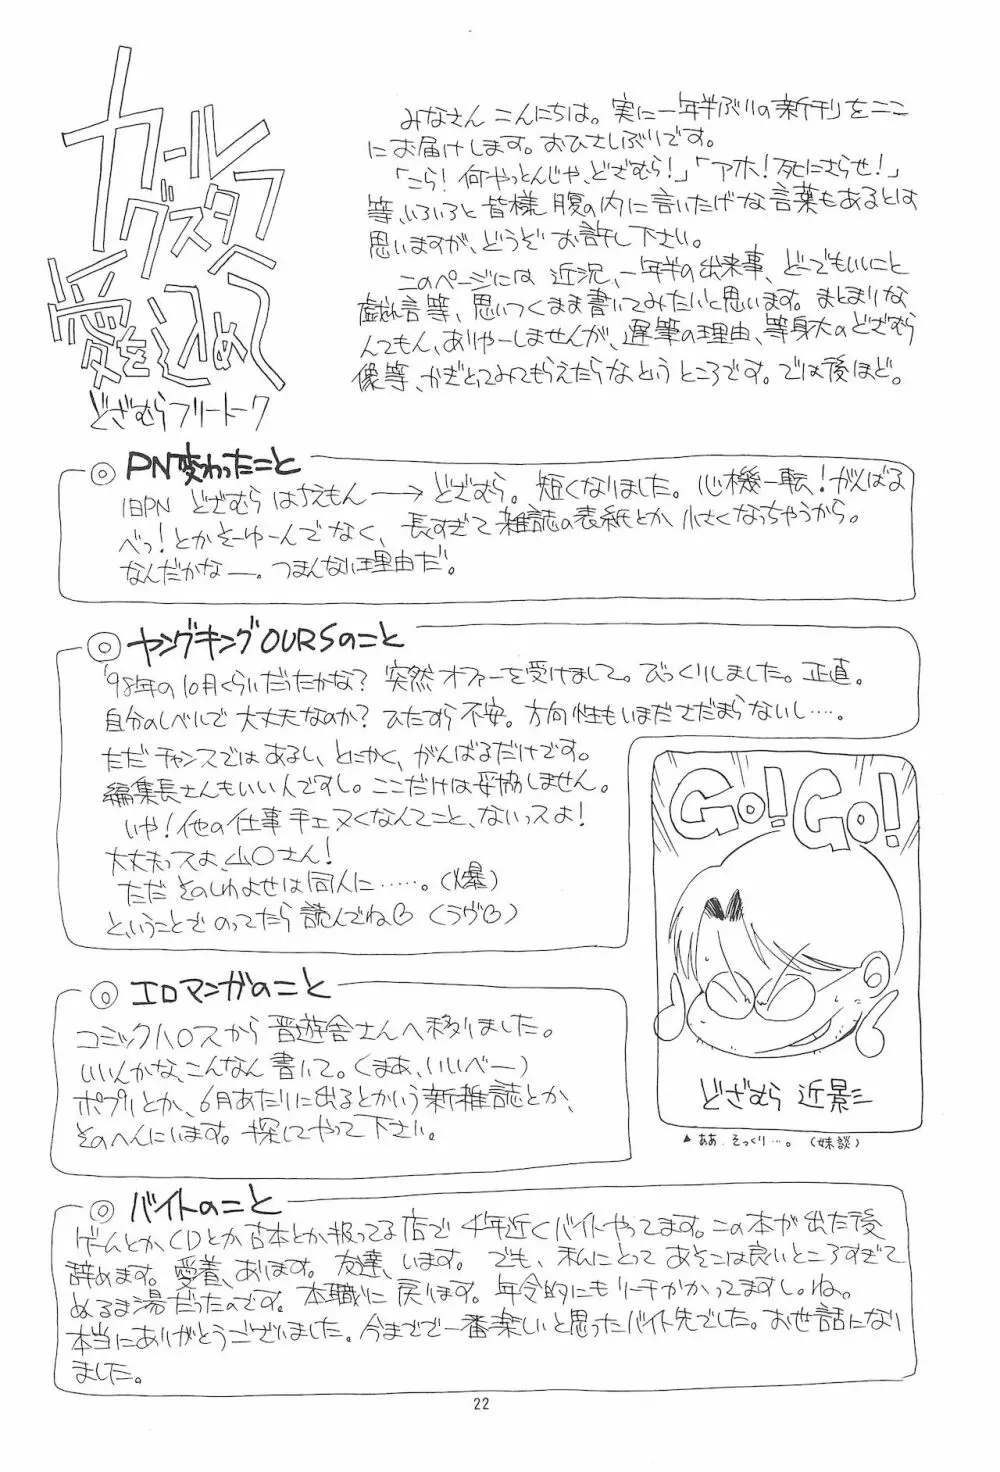 カールグスタフ
愛を込めて
どざむらフリートーク
みなさんこんにちは。実に一年半ぶりの新刊をここ
にお届けします。おひさしぶりです。
「こら!何やっとんじゃ、どざむら!」「アホ!死にさらせ!」
等、いろいろと皆様腹の内に言いたげな言葉もあるとは
思いますが、どうぞお許し下さい。
このページには近況、一年半の出来事、どーでもいいこと
戯れ言等、思いつくまま書いてみたいと思います。まとまりな
んてもん、ありゃーしませんが、遅筆の理由、等身大のどざむら
像等、かぎとってみてもらえたらなというところです。では後ほど。
◎ PN変わったこと
旧PN どざむらはちえもん → どざむら。短くなりました。心機一転!がんばる
べっ!とかそーゆーんでなく、長すぎて雑誌の表紙とか小さくなっちゃうから。
なんだかなー。つまんない理由だ。
◎ ヤングキングOURSのこと
'98年の10月くらいだったかな?突然オファーを受けまして。びっくりしました。正直。
自分のレベルで大丈夫なのか?ひたすら不安。方向性もいまださだまらないし‥‥。
ただチャンスではあるし、とにかく、がんばるだけです。
編集長さんもいい人ですし。ここだけは妥協しません。
いや!他の仕事手ェヌくなんてこと、ないっスよ!
大丈夫っスよ、山○さん!
ただそのしわよせは同人に‥‥‥。(爆)
ということでのってたら読んでね♡(ラヴ♡)
Go! Go!
どざむら 近影
▲ああ、そっくり…。(妹談)
◎ エロマンガのこと
コミックハ○スから晋遊舎さんへ移りました。
いいんかな、こんなん書いて。(まあ、いいべー)
ポプリとか、6月あたりに出るとかいう新雑誌とか、
そのへんにいます。探してやって下さい。
◎ バイトのこと
ゲームとかCDとか古本とか扱ってる店で4年近くバイトやってます。この本が出た後
辞めます。愛着、あります。友達、います。でも、私にとってあそこは良いところすぎて
ぬるま湯だったのです。本職に戻ります。年令的にもリーチかかってますし。ね。
本当にありがとうございました。今までで一番楽しいと思ったバイト先でした。お世話になり
ました。
22